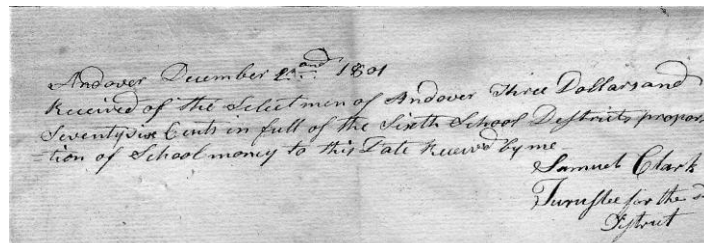 Andover December 2nd 1801
Received of the Selectmen of Andover Three Dollars and
Seventy Cents in full of the Sixth School Destricts propor-
tion of School money to this Date Received by me
Samuel Clark
Turustee for the
Destrict